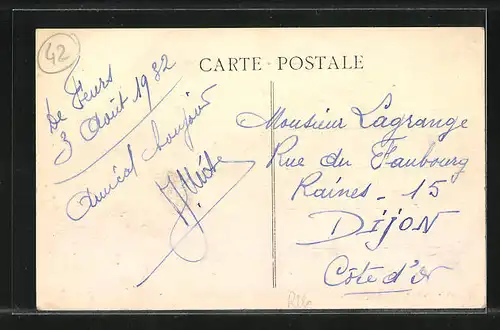 42
CARTE POSTALE
De Feurs
3 Août 1932
Amical toujours
Monsieur Lagrange
Rue du Faubourg
Raines - 15
Dijon
Côte d'Or